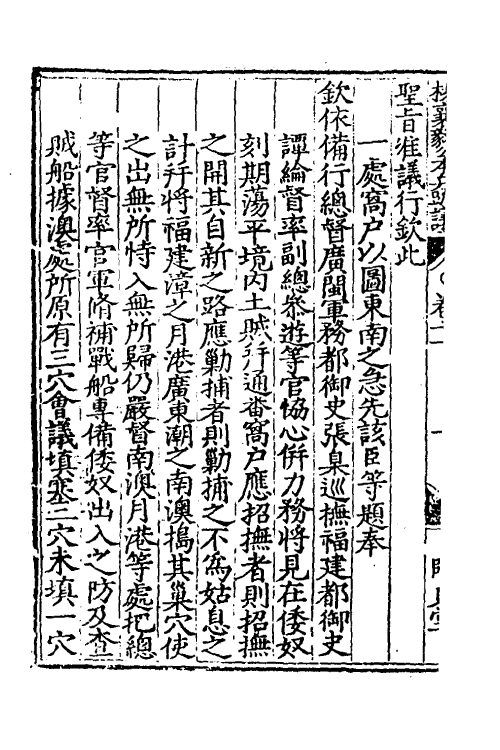 聖旨准議行欽此
一處窩戶以圖東南之急先該臣等題奉
欽依備行總督廣閩軍務都御史張臬巡撫福建都御史
譚綸督率副總叅遊等官協心併力務將見在倭奴
刻期蕩平境內土賊并通番窩戶應招撫者則招撫
之開其自新之路應勦捕者則勦捕之不爲姑息之
計并將福建漳之月港廣東潮之南澳搗其巢穴使
之出無所恃入無所歸仍嚴督南澳月港等處把總
等官督率官軍脩補戰船專備倭奴出入之防及查
賊船據澳處所原有三穴會議填塞二穴未填一穴